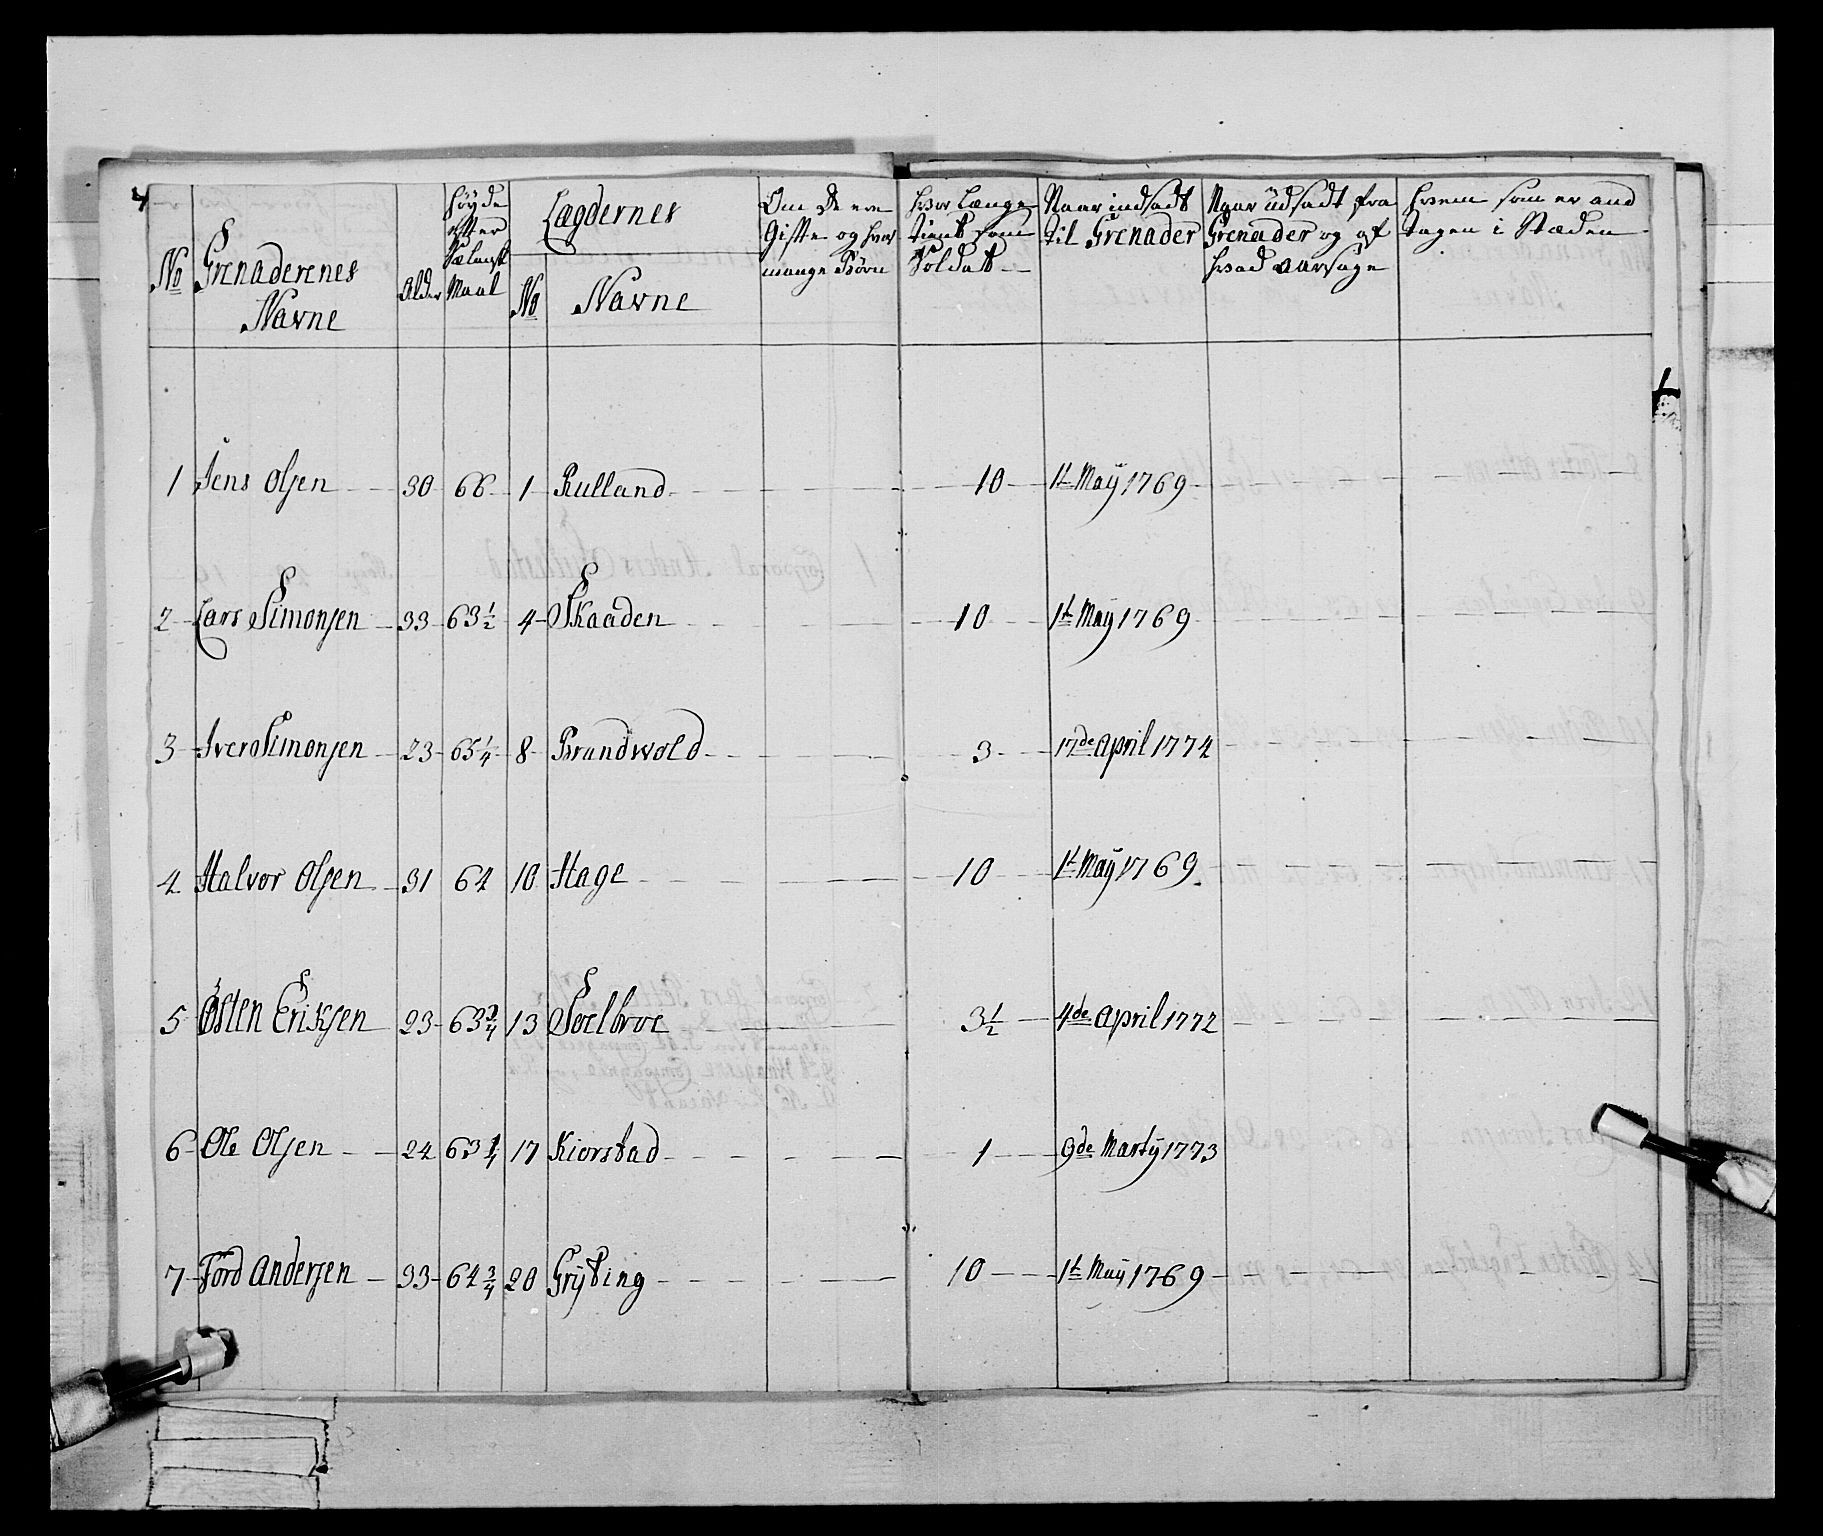 4
No
Grenaderenes
Navne
Alder
Høyde
efter
Sælansk
Maal
Lægdernes
No
Navne
Om De ere
Gifte og hvor
mange Børn
Hvor Længe
tient som
Soldat
Naar indsadt
til Grenader
Naar üdsadt fra
Grenader og af
hvad aarsage
Hvem som er and
tagen i Stæden
1 Jens Olsen 30 66 1 Rulland 10 1t May 1769
2 Lars Simonsen 33 63 1/2 4 Skaaden 10 1t May 1769
3 Iver Simonsen 23 65 1/4 8 Brandwold 3 17de April 1774
4 Halvor Olsen 31 64 10 Hage 10 1t May 1769
5 Østen Eriksen 23 63 3/4 13 Soelbroe 3 1/2 4de April 1772
6 Ole Olsen 24 63 1/4 17 Kiorstad 1 9de Marty 1773
7 Tord Andersen 33 64 3/4 20 Gryting 10 1t May 1769